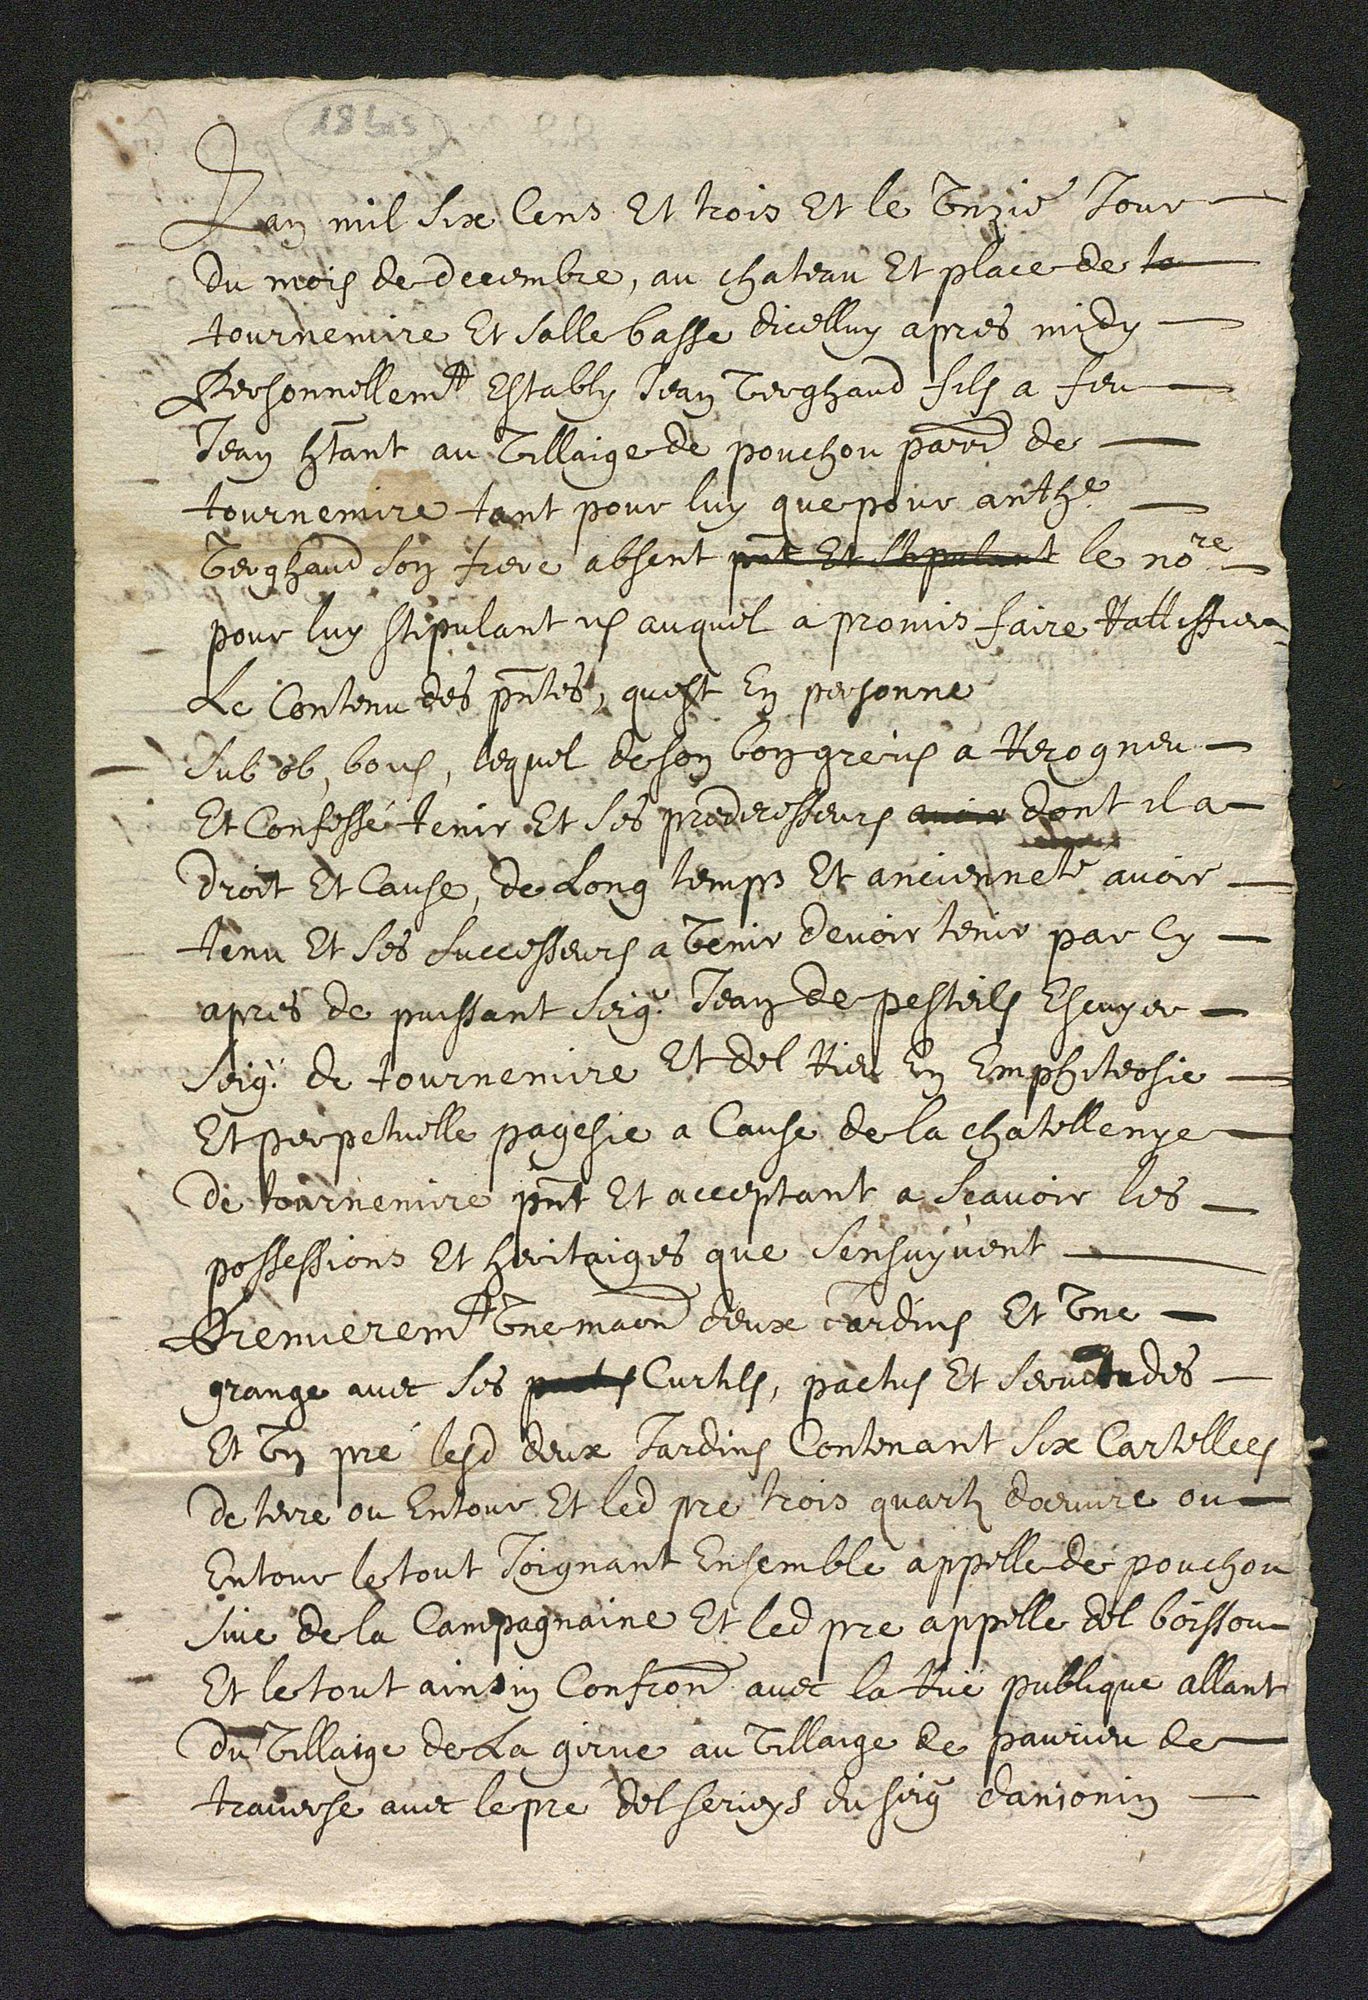 18 bis
Lan mil six Cens Et trois Et le Unzie Jour
du mois de decembre, au chateau Et place de to
tournemire Et salle basse dicelluy apres midy
Personnellemt Estably Jean Verghaud fils a feu
Jean htant au Village de pouchou parrd de
tournemire tant pour luy que pour anthe
Verghaud son frere absent pnt Et stipulant le nore
pour luy stipulant us auquel a promis faire Rattiffier
Le Contenu des pntes, quest En personne
Sub ob, bous, lequel de son bon gre us a Recogneu
Et Confessé tenir Et ses predecesseurs avoir dont il a
droit Et Cause, de Long temps Et ancienneté avoir
tenu Et ses successeurs a Venir devoir tenir par Cy
apres de puissant seigr Jean de pesteils Escuyer
seigr de tournemire Et del Rieu En Emphiteosie
Et perpetuelle pagesie a Cause de la chatellenye
de tournemire pnt Et acceptant a scavoir les
possessions Et heritaiges que sensuyvent
Premieremt Une maon deux Jardins Et Une
grange avec ses pactus Curtils, pactus Et servitudes
Et Un pré lesd deux Jardins Contenant six Cartellees
de terre ou Entour Et led pre trois quartz doeuvre ou
Entour le tout Joignant Ensemble appelle de pouchou
sive de la Campagnaine Et led pre appelle del boissou
Et le tout ainsin Confron avec la Rue publique allant
du Villaige de La girue au Villaige de paurieu de
traverse avec le pre del serieys du seigr danionin